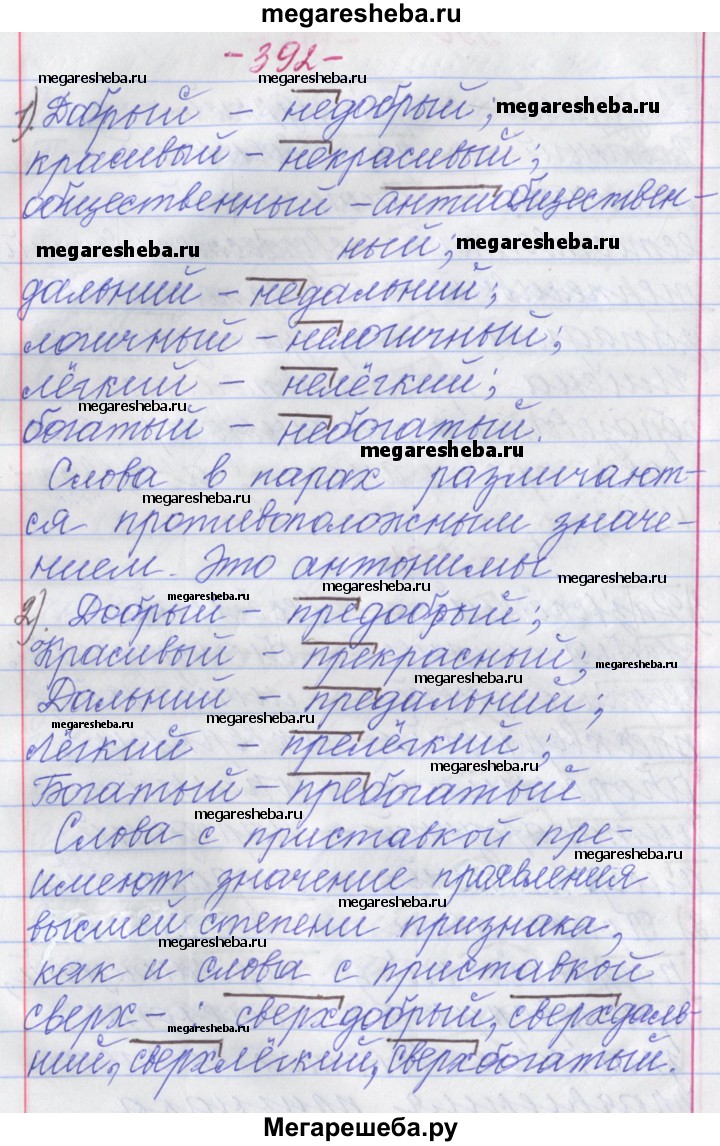 megaresheba.ru
- 392 -
megaresheba.ru megaresheba.ru
1). Добрый – недобрый; megaresheba.ru
красивый – некрасивый;
общественный – антиобществен-
ный;
megaresheba.ru megaresheba.ru
дальний – недальний;
логичный – нелогичный;
лёгкий – нелёгкий;
megaresheba.ru megaresheba.ru
богатый – небогатый.
megaresheba.ru
Слова в парах различают-
megaresheba.ru megaresheba.ru
ся противоположным значе-
нием. Это антонимы
megaresheba.ru megaresheba.ru
megaresheba.ru
2). Добрый – предобрый;
Красивый – прекрасный;
megaresheba.ru megaresheba.ru
Дальний – предальний;
megaresheba.ru megaresheba.ru
Лёгкий – прелёгкий;
megaresheba.ru
Богатый – пребогатый
megaresheba.ru
Слова с приставкой пре-
megaresheba.ru
имеют значение проявления
megaresheba.ru
высшей степени признака,
megaresheba.ru
как и слова с приставкой
сверх- : сверхдобрый, сверхдаль-
megaresheba.ru
ний, сверхлёгкий, сверхбогатый.
Мегарешеба.ру